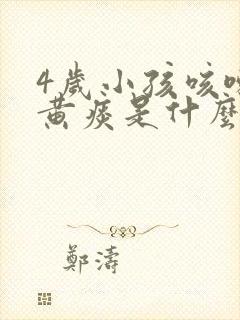 4歲小孩咳嗽
黃痰是什麼
鄭濤